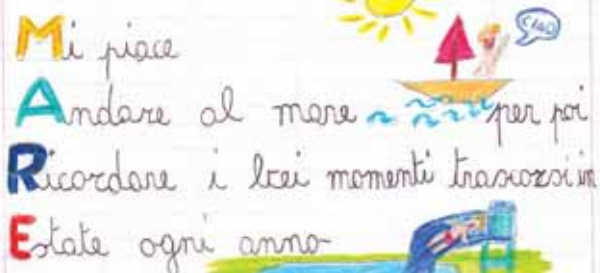 CIAO
Mi piace
Andare al mare per poi
Ricordare i bei momenti trascorsi in
Estate ogni anno